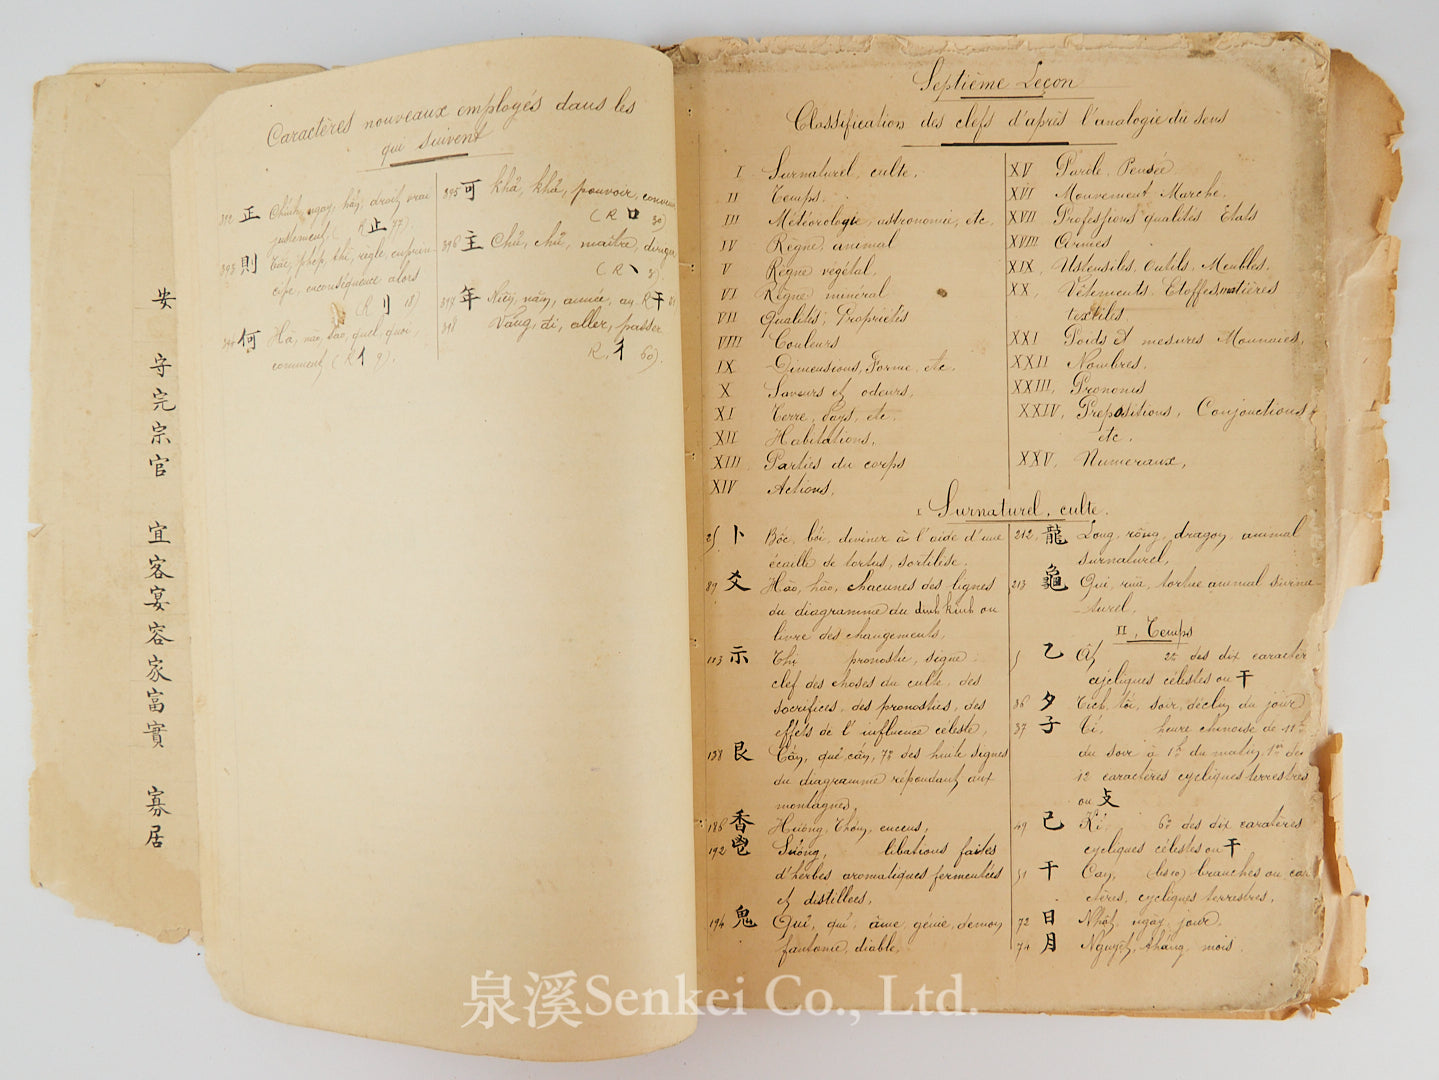 安
守
完
宗
官
宜
客
宴
容
家
富
實
寡
居
Caractères nouveaux employés dans les
qui suivent
392 正 Chính, ngay, hãy, droit, vrai
justement ( R 止 77).
393 則 Tắc, phép, thì, règle, 
cipe, en conséquence alors
R 刂 18)
394 何 Hà, nào, sao, quel, quoi,
comment ( R 亻 9),
395 可 khả, khá, pouvoir,
( R 口 30)
396 主 Chủ, chủ, maître,
( R 丶 3)
397 年 Niên, năm, année, R 干 51
398 Vãng, đi, aller, passer
R, 彳 60).
Septième Leçon
Classification des clefs d'après l'analogie du sens
I Surnaturel, culte,
II Temps.
III Météorologie, astronomie, etc.
IV Règne animal
V Règne végétal,
VI Règne minéral
VII Qualités, Propriétés
VIII Couleurs
IX Dimensions, Forme, etc.
X Saveurs et odeurs,
XI Terre, Pays, etc.
XII Habitations,
XIII Parties du corps
XIV Actions,
XV Parole, Pensée,
XVI Mouvement Marche.
XVII Professions qualités Etats
XVIII Armes
XIX, Ustensiles, Outils, Meubles.
XX, Vêtements, Etoffes matières
textiles.
XXI Poids et mesures Monnaies,
XXII Nombres.
XXIII, Pronoms
XXIV, Prépositions, Conjonctions
etc.
XXV, Numeraux,
I Surnaturel, culte.
25 卜 Bóc, bói, deviner à l'aide d'une
écaille de tortue, sortilège.
89 爻 Hào, hào, chacunes des lignes
du diagramme du dinh kinh ou
livre des changements,
113 示 Thị pronostic, signe:
clef des choses du culte, des
sacrifices, des pronostics, des
effets de l'influence céleste,
138 艮 Cấn, quẻ cấn, 7e des huit signes
du diagramme répondant aux
montagnes,
186 香 Hương, thơm, encens,
192 鬯 Sưởng, libations faites
d'herbes aromatiques fermentées
et distillées,
194 鬼 Quỉ, quỉ, âme, génie, démon,
fantome, diable,
212, 龍 Long, rồng, dragon, animal
surnaturel,
213 龜 Qui, rùa, tortue animal surna-
-turel.
II, Temps
5 乙 Ất 2e des dix caractèr
cycliques célestes ou 干
36 夕 Tịch, tối, soir, déclin du jour
39 子 Tí, heure chinoise de 11h
du soir à 1h du matin, 1er des
12 caractères cycliques terrestres
ou 支
49 已 Kỉ, 6e des dix caratères
cycliques célestes ou 干
51 干 Can, (les 10) branches ou ca
ctères, cycliques terrestres,
72 日 Nhật, ngày, jour.
74 月 Nguyệt, tháng, mois.
泉溪Senkei Co., Ltd.